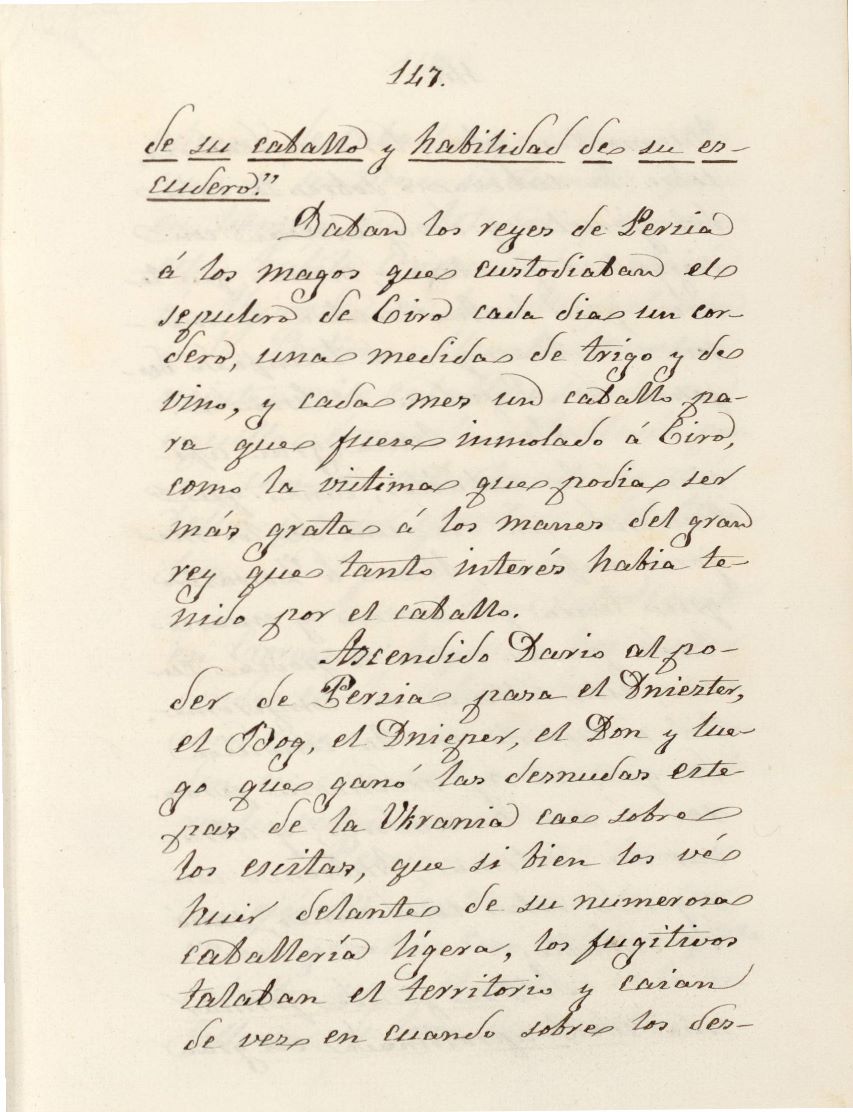 147.
de su caballo y habilidad de su es-
cudero."
Daban los reyes de Persia
á los magos que custodiaban el
sepulcro de Ciro cada dia un cor-
dero, una medida de trigo y de
vino, y cada mes un caballo pa-
ra que fuese inmolado á Ciro,
como la victima que podia ser
más grata á los manes del gran
rey que tanto interés habia te-
nido por el caballo.
Ascendido Dario al po-
der de Persia pasa el Dniester,
el Bog, el Dnieper, el Don y lue-
go que ganó las desnudas este-
pas de la Ukrania cae sobre
los escitas, que si bien los vé
huir delante de su numerosa
caballería ligera, los fugitivos
talaban el territorio y caian
de vez en cuando sobre los des-